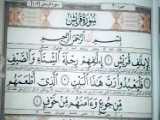 سورة قريش
بسم الله الرحمن الرحيم
لإيلف قريش ۝ إلفهم رحلة الشتاء والصيف ۝
فليعبدوا رب هذا البيت ۝ الذي أطعمهم
من جوع وءامنهم من خوف ۝